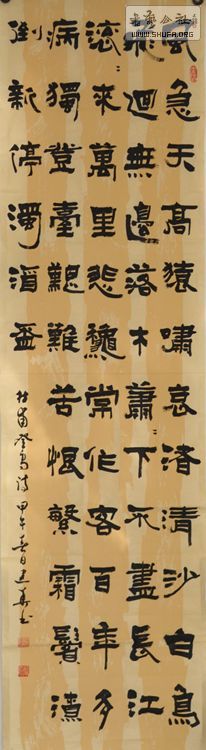 书法公社
WWW.SHUFA.ORG
風急天高猿嘯哀渚清沙白鳥
飛迴無邊落木蕭〻下不盡長江
滾〻來萬里悲龝常作客百年多
病獨登臺艱難苦恨繁霜鬢潦
倒新停濁酒盃
杜甫登高诗甲午春日建華书